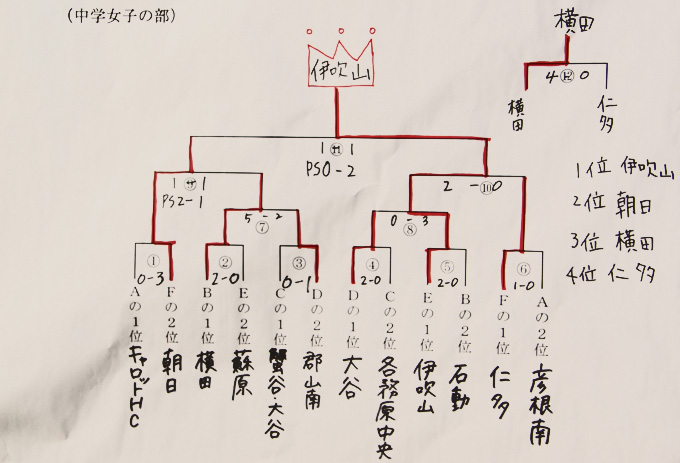 (中学女子の部)
横田
伊吹山
4 ⑫ 0
横田
仁多
1 ⑪ 1
PS0-2
1位 伊吹山
2位 朝日
3位 横田
4位 仁多
1 ⑨ 1
PS2-1
2 - ⑩ 0
5 - 2
⑦
0 - 3
⑧
① ② ③ ④ ⑤ ⑥
0-3 2-0 0-1 2-0 2-0 1-0
Aの1位 キャロットHC
Fの2位 朝日
Bの1位 横田
Eの2位 蘇原
Cの1位 蟹谷・大谷
Dの2位 郡山南
Dの1位 大谷
Cの2位 各務原中央
Eの1位 伊吹山
Bの2位 石動
Fの1位 仁多
Aの2位 彦根南